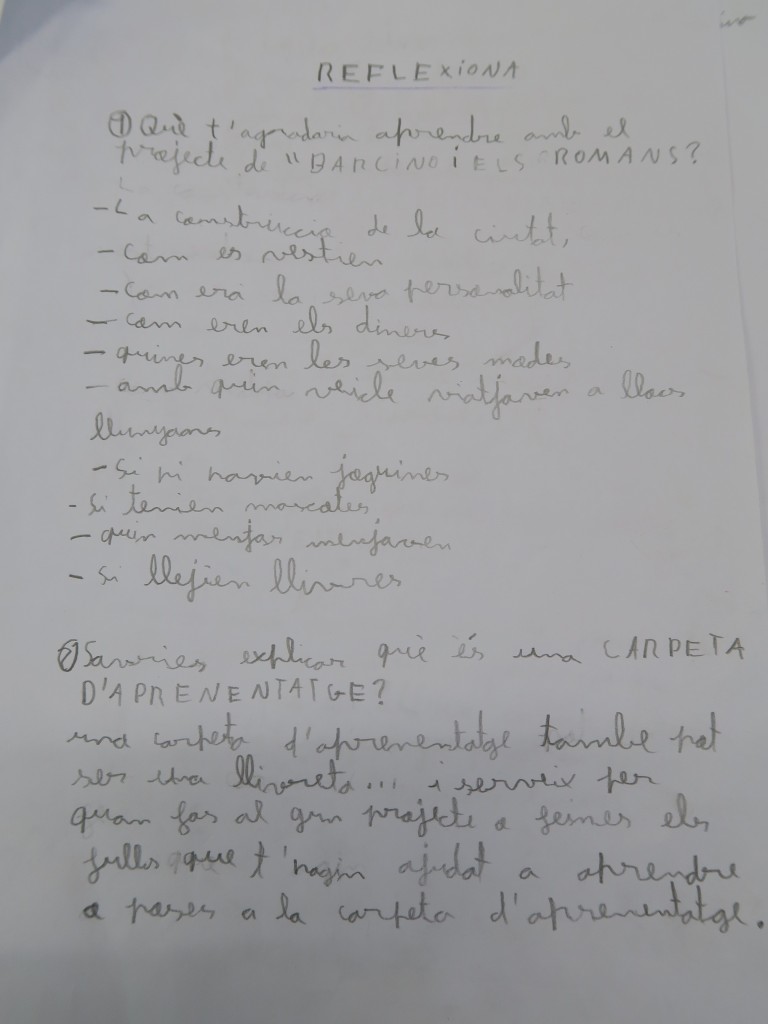 REFLEXIONA
① Què t'agradaria aprendre amb el
projecte de "BARCINO i ELS ROMANS?
- La construcció de la ciutat,
- com es vestien
- com era la seva personalitat
- com eren els diners
- quines eren les seves modes
- amb quin veicle viatjaven a llocs
llunyans
- Si hi havien joguines
- si tenien mascotes
- quin menjar menjaven
- si llejien llivres
② Savries explicar què és una CARPETA
D'APRENENTATGE?
una carpeta d'aprenentatge tambe pot
ser una llivreta... i serveix per
quan fas al gun projecte o feines els
fulls que t'hagin ajudat a aprendre
a poses a la carpeta d'aprenentatge.